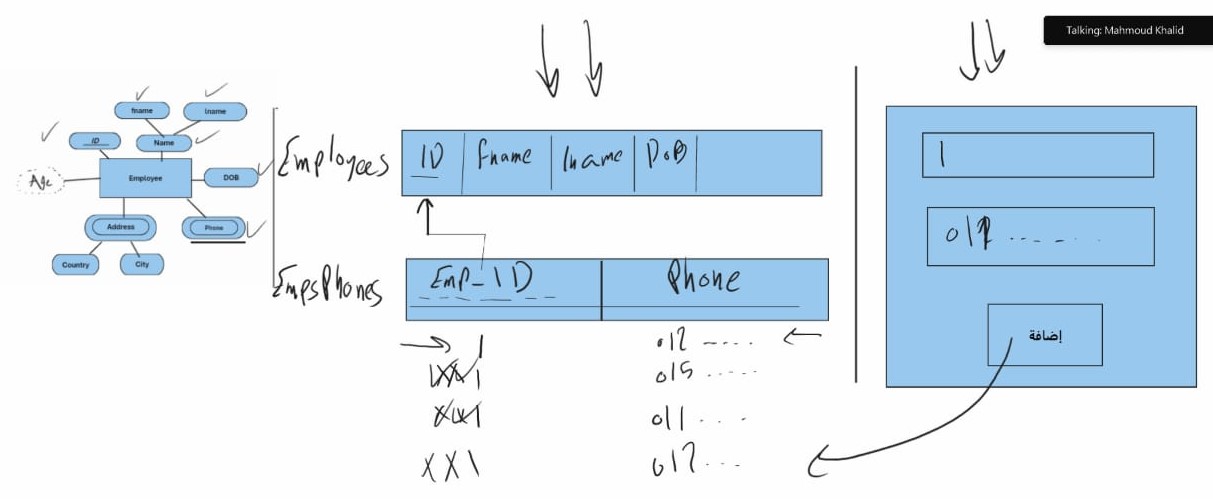 Talking: Mahmoud Khalid
fname
lname
ID
Name
Age
Employee
DOB
Address
Phone
Country
City
Employees
ID
fname
lname
DoB
EmpsPhones
Emp-ID
Phone
1
012 ----.....
015 ......
011 . . - .
XX1
012...
1
إضافة